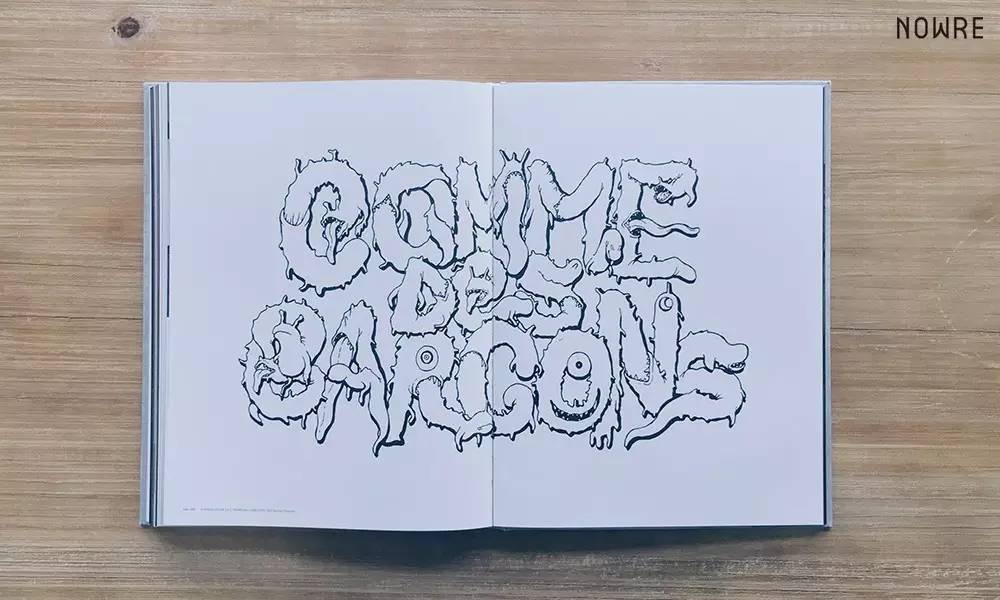 NOWRE
COMME
DES
GARÇONS